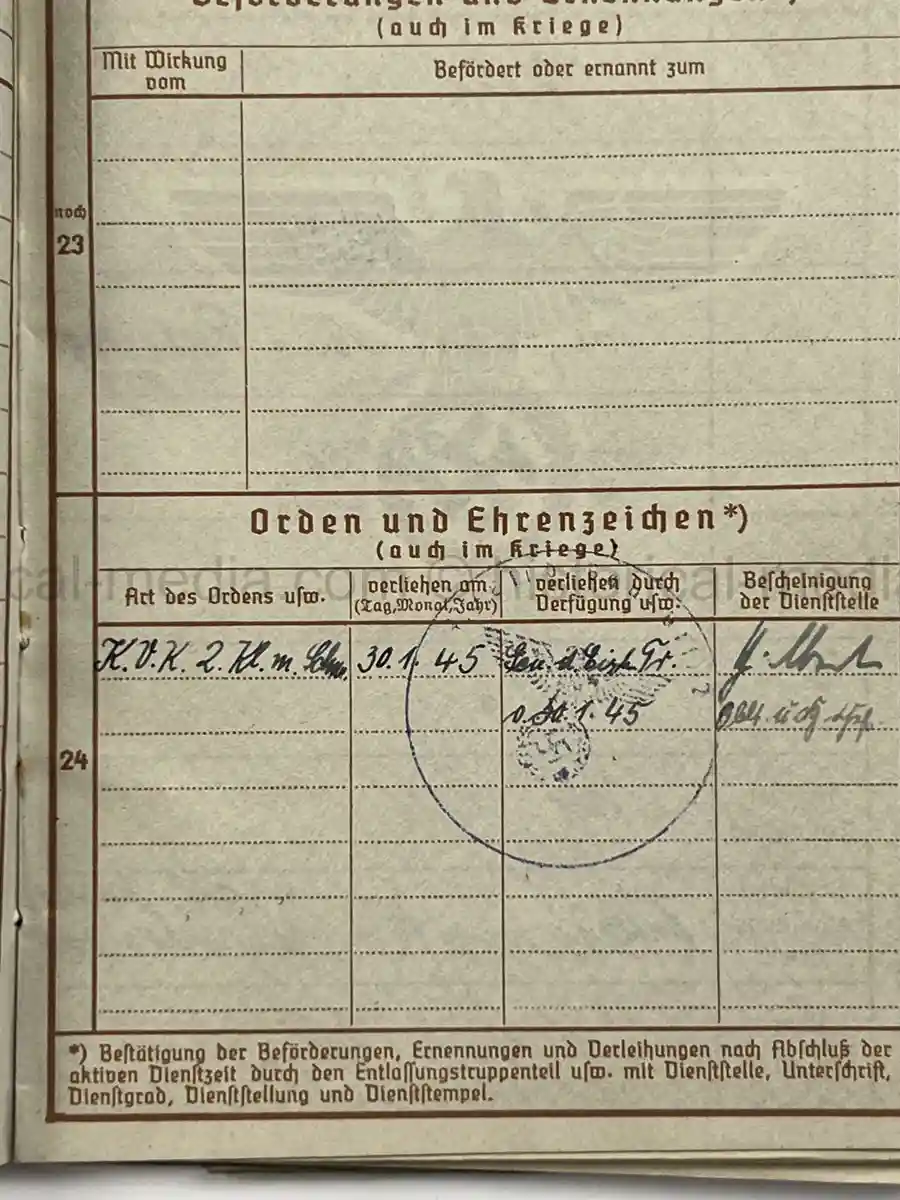 Beförderungen und Ernennungen*)
(auch im Kriege)
Mit Wirkung vom
Befördert oder ernannt zum
noch
23
Orden und Ehrenzeichen*)
(auch im Kriege)
Art des Ordens usw.
verliehen am
(Tag, Monat, Jahr)
verliehen durch
Verfügung usw.
Bescheinigung
der Dienststelle
K.V.K. 2. Kl. m. 30.1.45 d. Tr.
v. 30.1.45 Oblt. u.
24
*) Bestätigung der Beförderungen, Ernennungen und Verleihungen nach Abschluß der
aktiven Dienstzeit durch den Entlassungstruppenteil usw. mit Dienststelle, Unterschrift,
Dienstgrad, Dienststellung und Dienststempel.